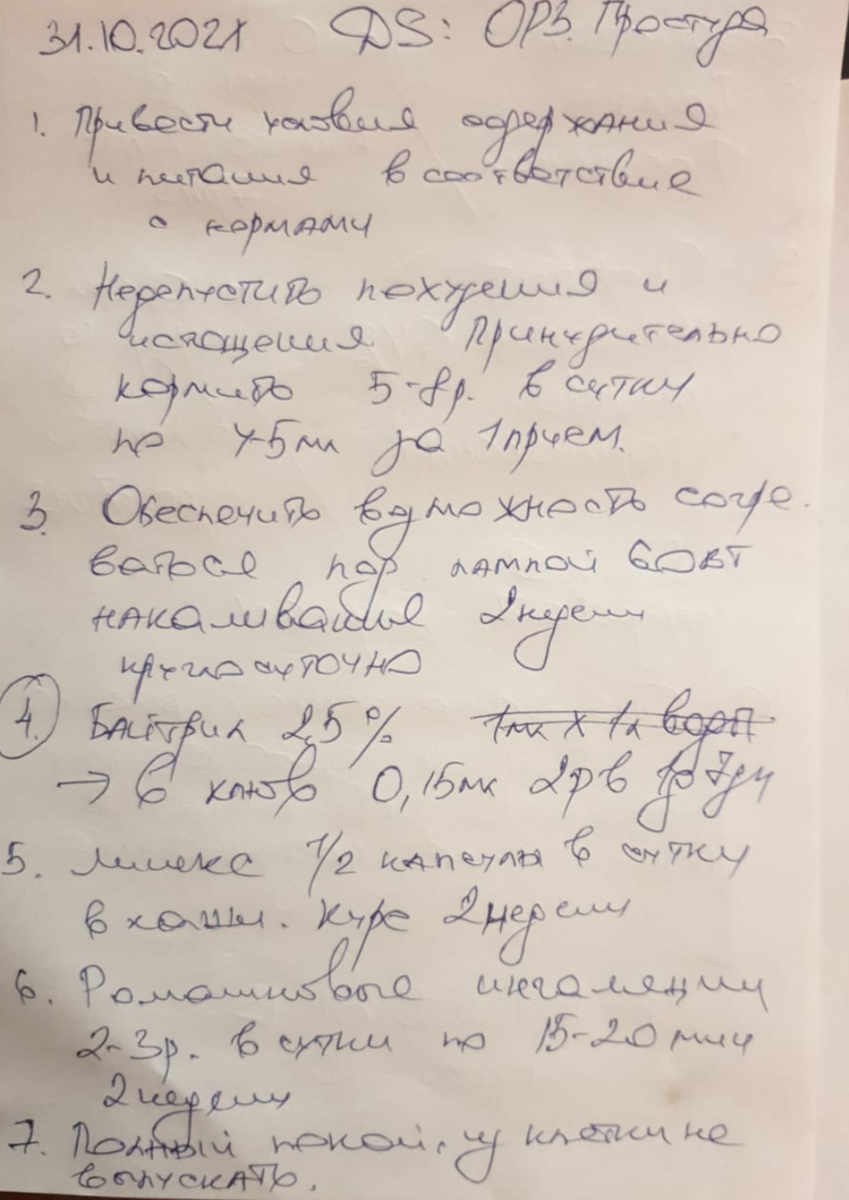 31.10.2021 DS: ОРЗ. Простуда
1. Привести условия содержания
и питания в соответствие
с нормами
2. Недопустить похудения и
истощения. Принудительно
кормить 5-8р. в сутки
по 4-5мл за 1 прием.
3. Обеспечить возможность согре-
ваться под лампой 60ВТ
накаливания 2 недели
круглосуточно
4. Байтрил 2,5% 1мл х 1л воды
→ в клюв 0,15мл 2р в 7дн
5. Линекс 1/2 капсулы в сутки
в каши. Курс 2 недели
6. Ромашковые ингаляции
2-3р. в сутки по 15-20 мин
2 недели
7. Полный покой, из клетки не
выпускать.